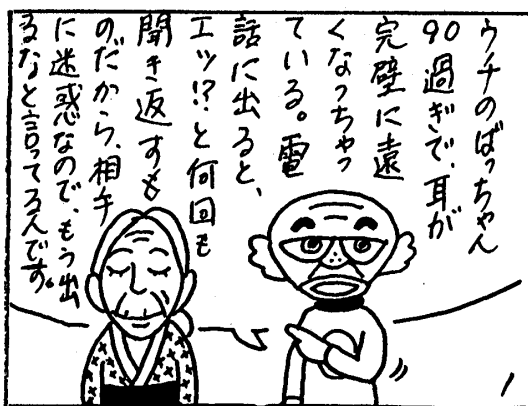 ウチのばっちゃん
90過ぎで、耳が
完壁に遠
くなっちゃっ
ている。電
話に出ると、
エッ!?と何回も
聞き返すも
のだから、相手
に迷惑なので、もう出
るなと言ってるんです。